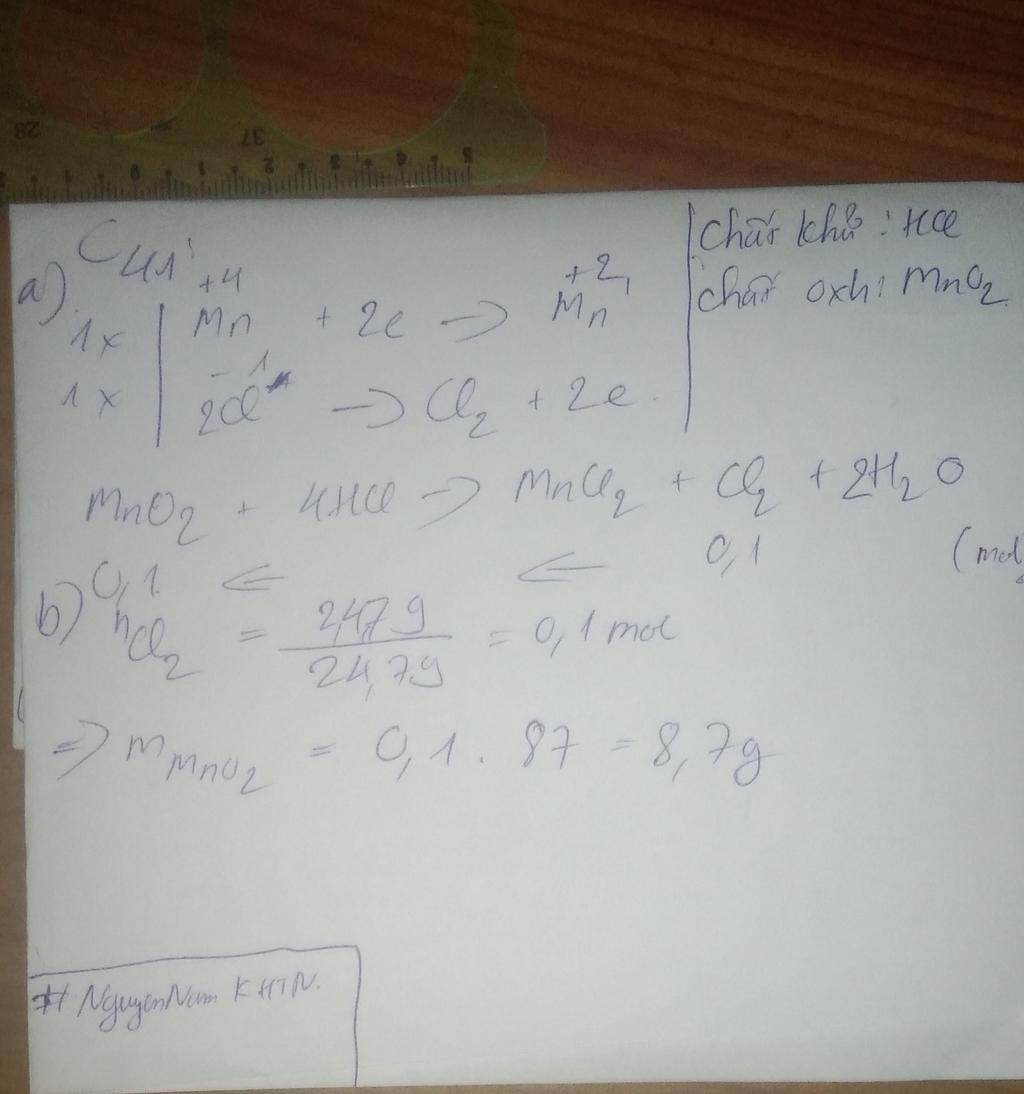 28 37
1 0 1 2 3 4 5
C41:
a)
+4 +2
1x | Mn + 2e → Mn
-1
1x | 2Cl → Cl2 + 2e.
Chất khử: HCl
chất oxh: MnO2
MnO2 + 4HCl → MnCl2 + Cl2 + 2H2O
0,1 ← ← 0,1 (mol
b) nCl2 = 2,479 / 24,79 = 0,1 mol
=> mMnO2 = 0,1 . 87 = 8,7g
# NguyenNam KHTN.